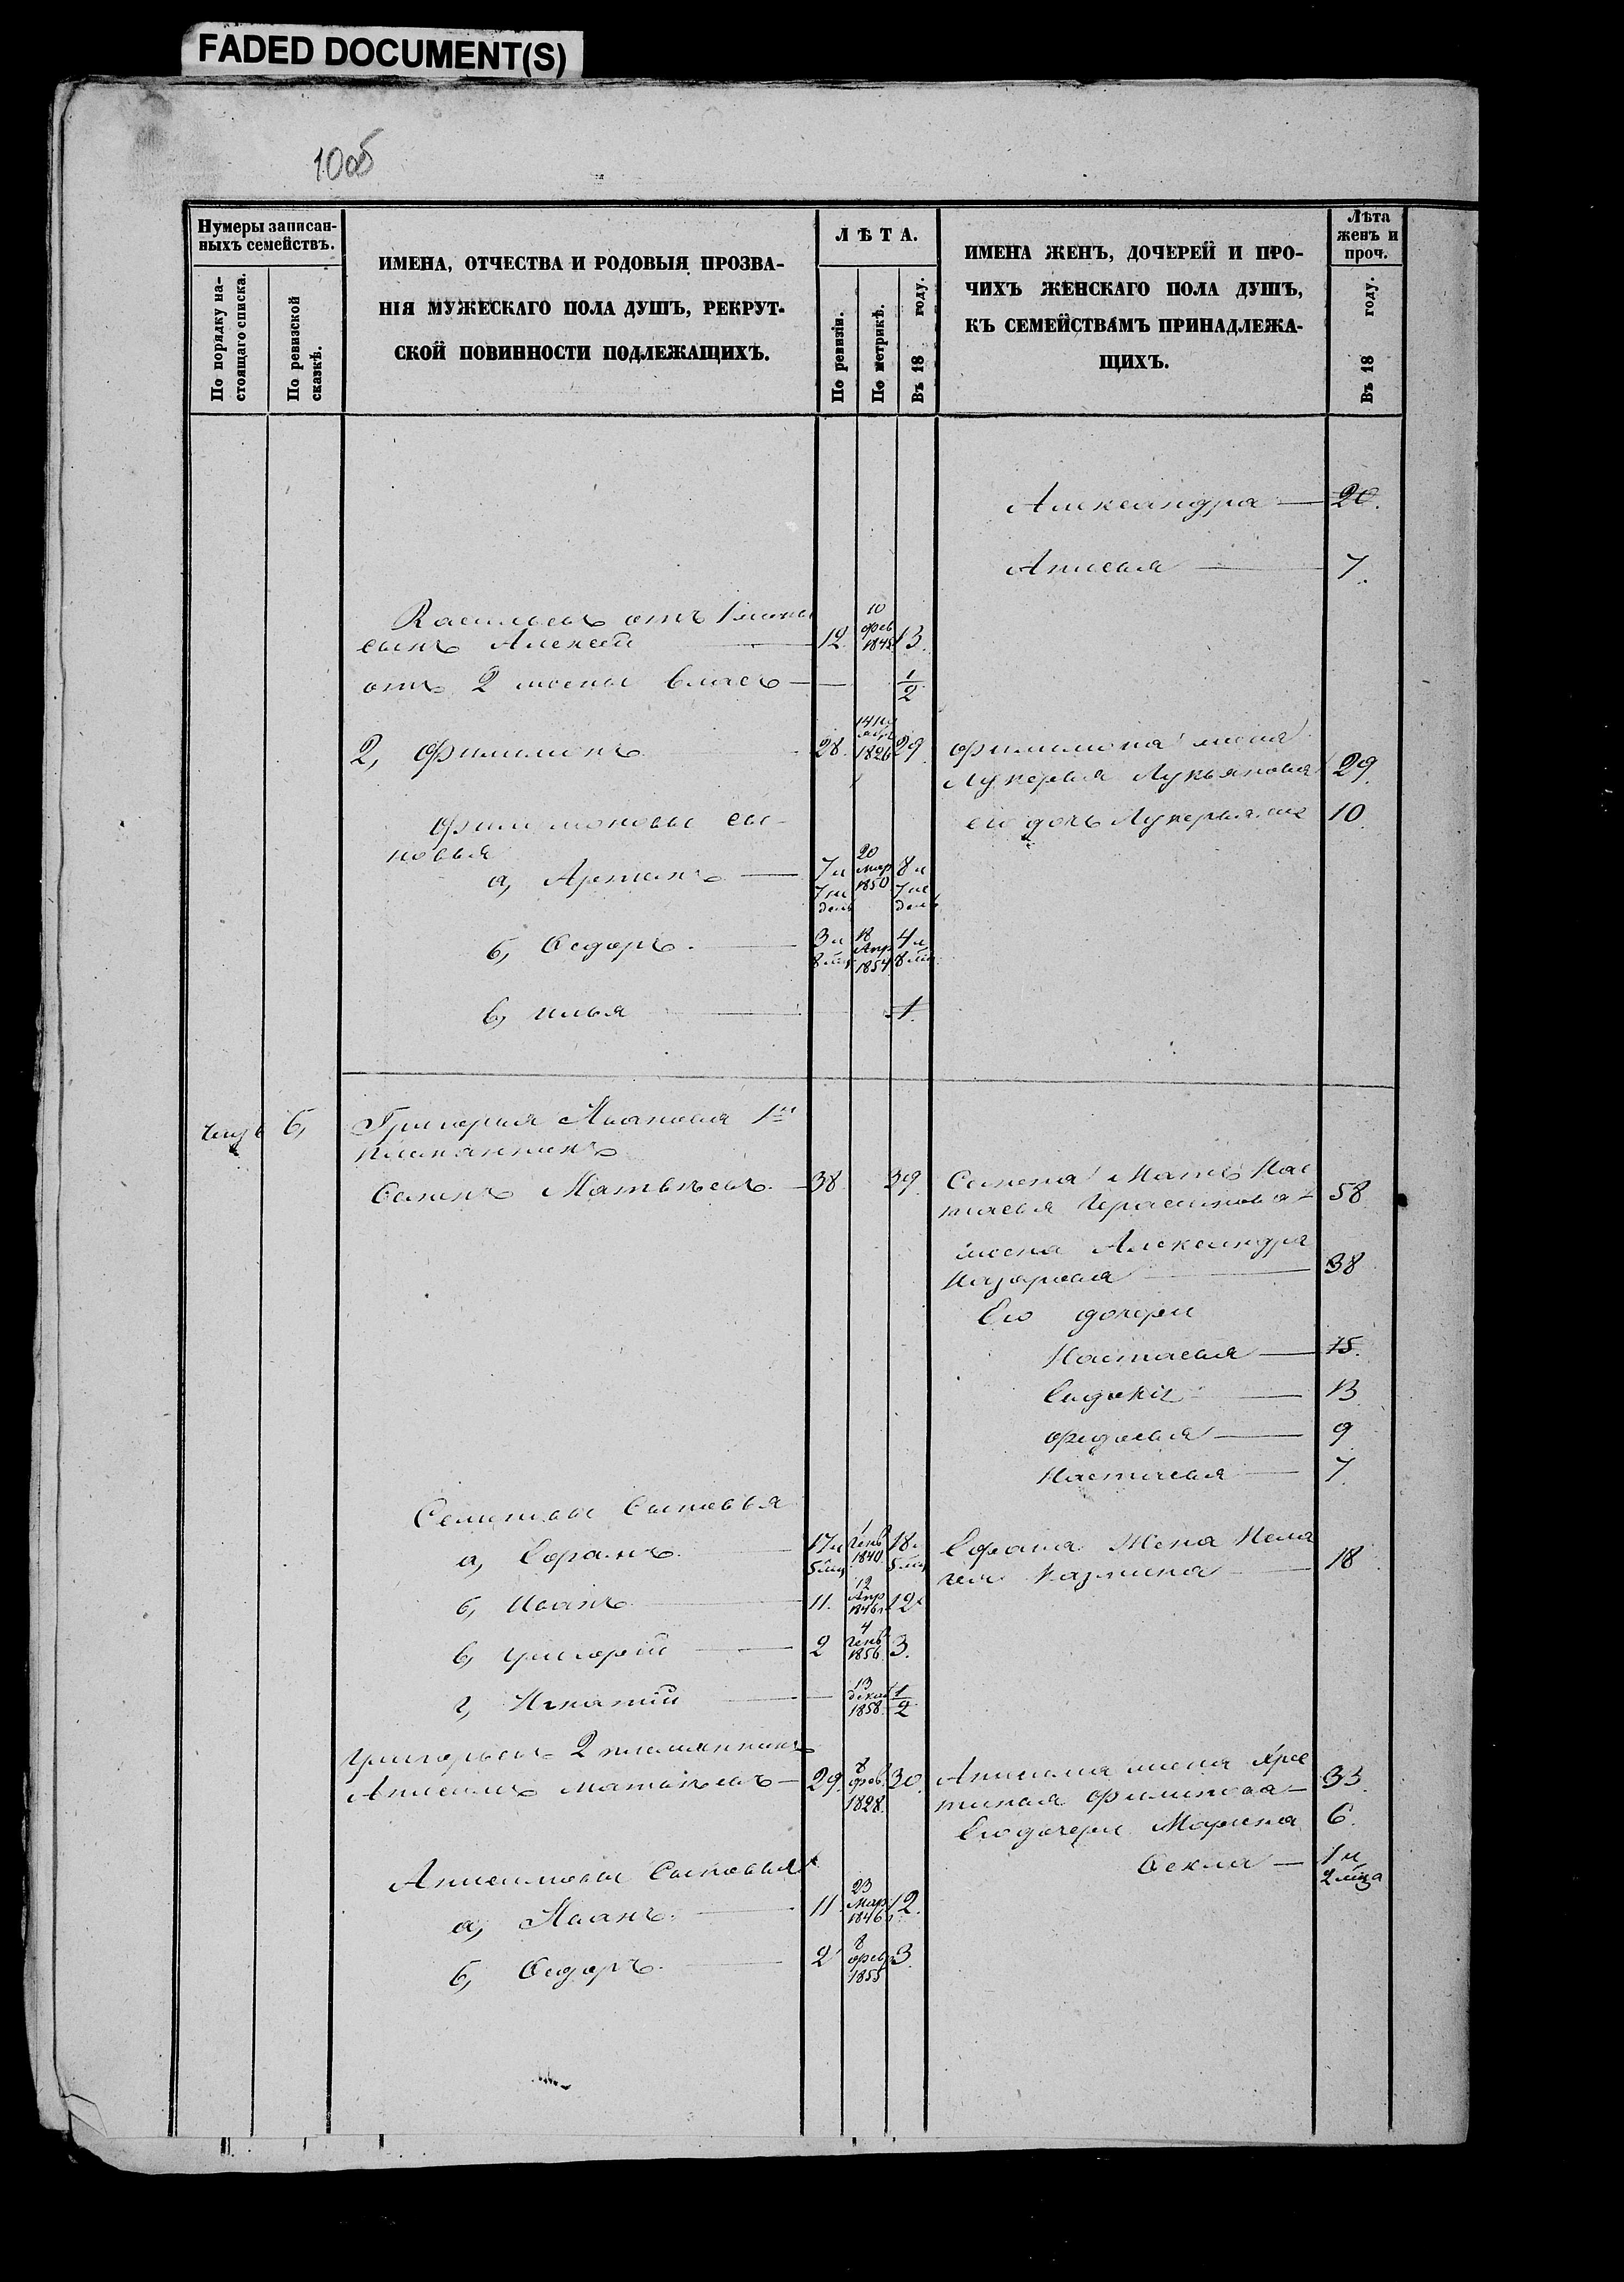 FADED DOCUMENT(S)
10об
Нумеры записан-
ныхъ семействъ.
По порядку на-
стоящаго списка.
По ревизской
сказкѣ.
ИМЕНА, ОТЧЕСТВА И РОДОВЫЯ ПРОЗВА-
НІЯ МУЖЕСКАГО ПОЛА ДУШЪ, РЕКРУТ-
СКОЙ ПОВИННОСТИ ПОДЛЕЖАЩИХЪ.
ЛѢТА.
По ревизіи.
По метрикѣ.
Въ 18 году.
ИМЕНА ЖЕНЪ, ДОЧЕРЕЙ И ПРО-
ЧИХЪ ЖЕНСКАГО ПОЛА ДУШЪ,
КЪ СЕМЕЙСТВАМЪ ПРИНАДЛЕЖА-
ЩИХЪ.
Лѣта
женъ и
проч.
Въ 18 году.
Александра — 20.
Анисья — 7.
Васильевъ отъ 1 жены
сынъ Алексей — 12. 10 фев 1845 13.
отъ 2 жены Власъ — 1/2
2, Филимонъ 28. 1826 29
Филимона жена
Лукерья Лукьянова 29.
его дочь Лукерья 10.
Филимоновы сы-
новья
а, Артемъ — 7 л 7 м день 20 мар 1850 8 л 7 м день
б, Ѳедоръ. — 3 л 8 мц 18 Апр 1854 4 л 8 мц
в, Илья — 1.
6,
Григорья Иванова 1й
племянникъ
Семенъ Матвѣевъ. 38. 39.
Семена Мать Нас
тасья Герасимова — 58
жена Александра
Назарова — 38
Его дочери
Настасья — 15.
Евдокія — 13.
Федосья — 9
Настасья — 7.
Семеновы Сыновья
а, Ефремъ. 17 л 5 мц 1 Генв 1840 18 л 5 мц
Ефрема Жена Пела
гея — 18.
б, Иванъ 11. 12 Апр 1846 12
в, Григорій — 2 4 Генв 1856 3.
г, Игнатій — 13 декаб 1858. 1/2
Григорьевъ 2 племянникъ
Анисимъ Матвѣевъ — 29. 8 фев. 1828. 30.
Анисима жена Хрис
тинья Филипова — 33.
Его дочери Марина 6.
Ѳекла — 1 и 2 мца
Анисимовы Сыновья
а, Иванъ. — 11. 23 Мар. 1846 12.
б, Ѳедоръ. — 2 8 февр 1855 3.